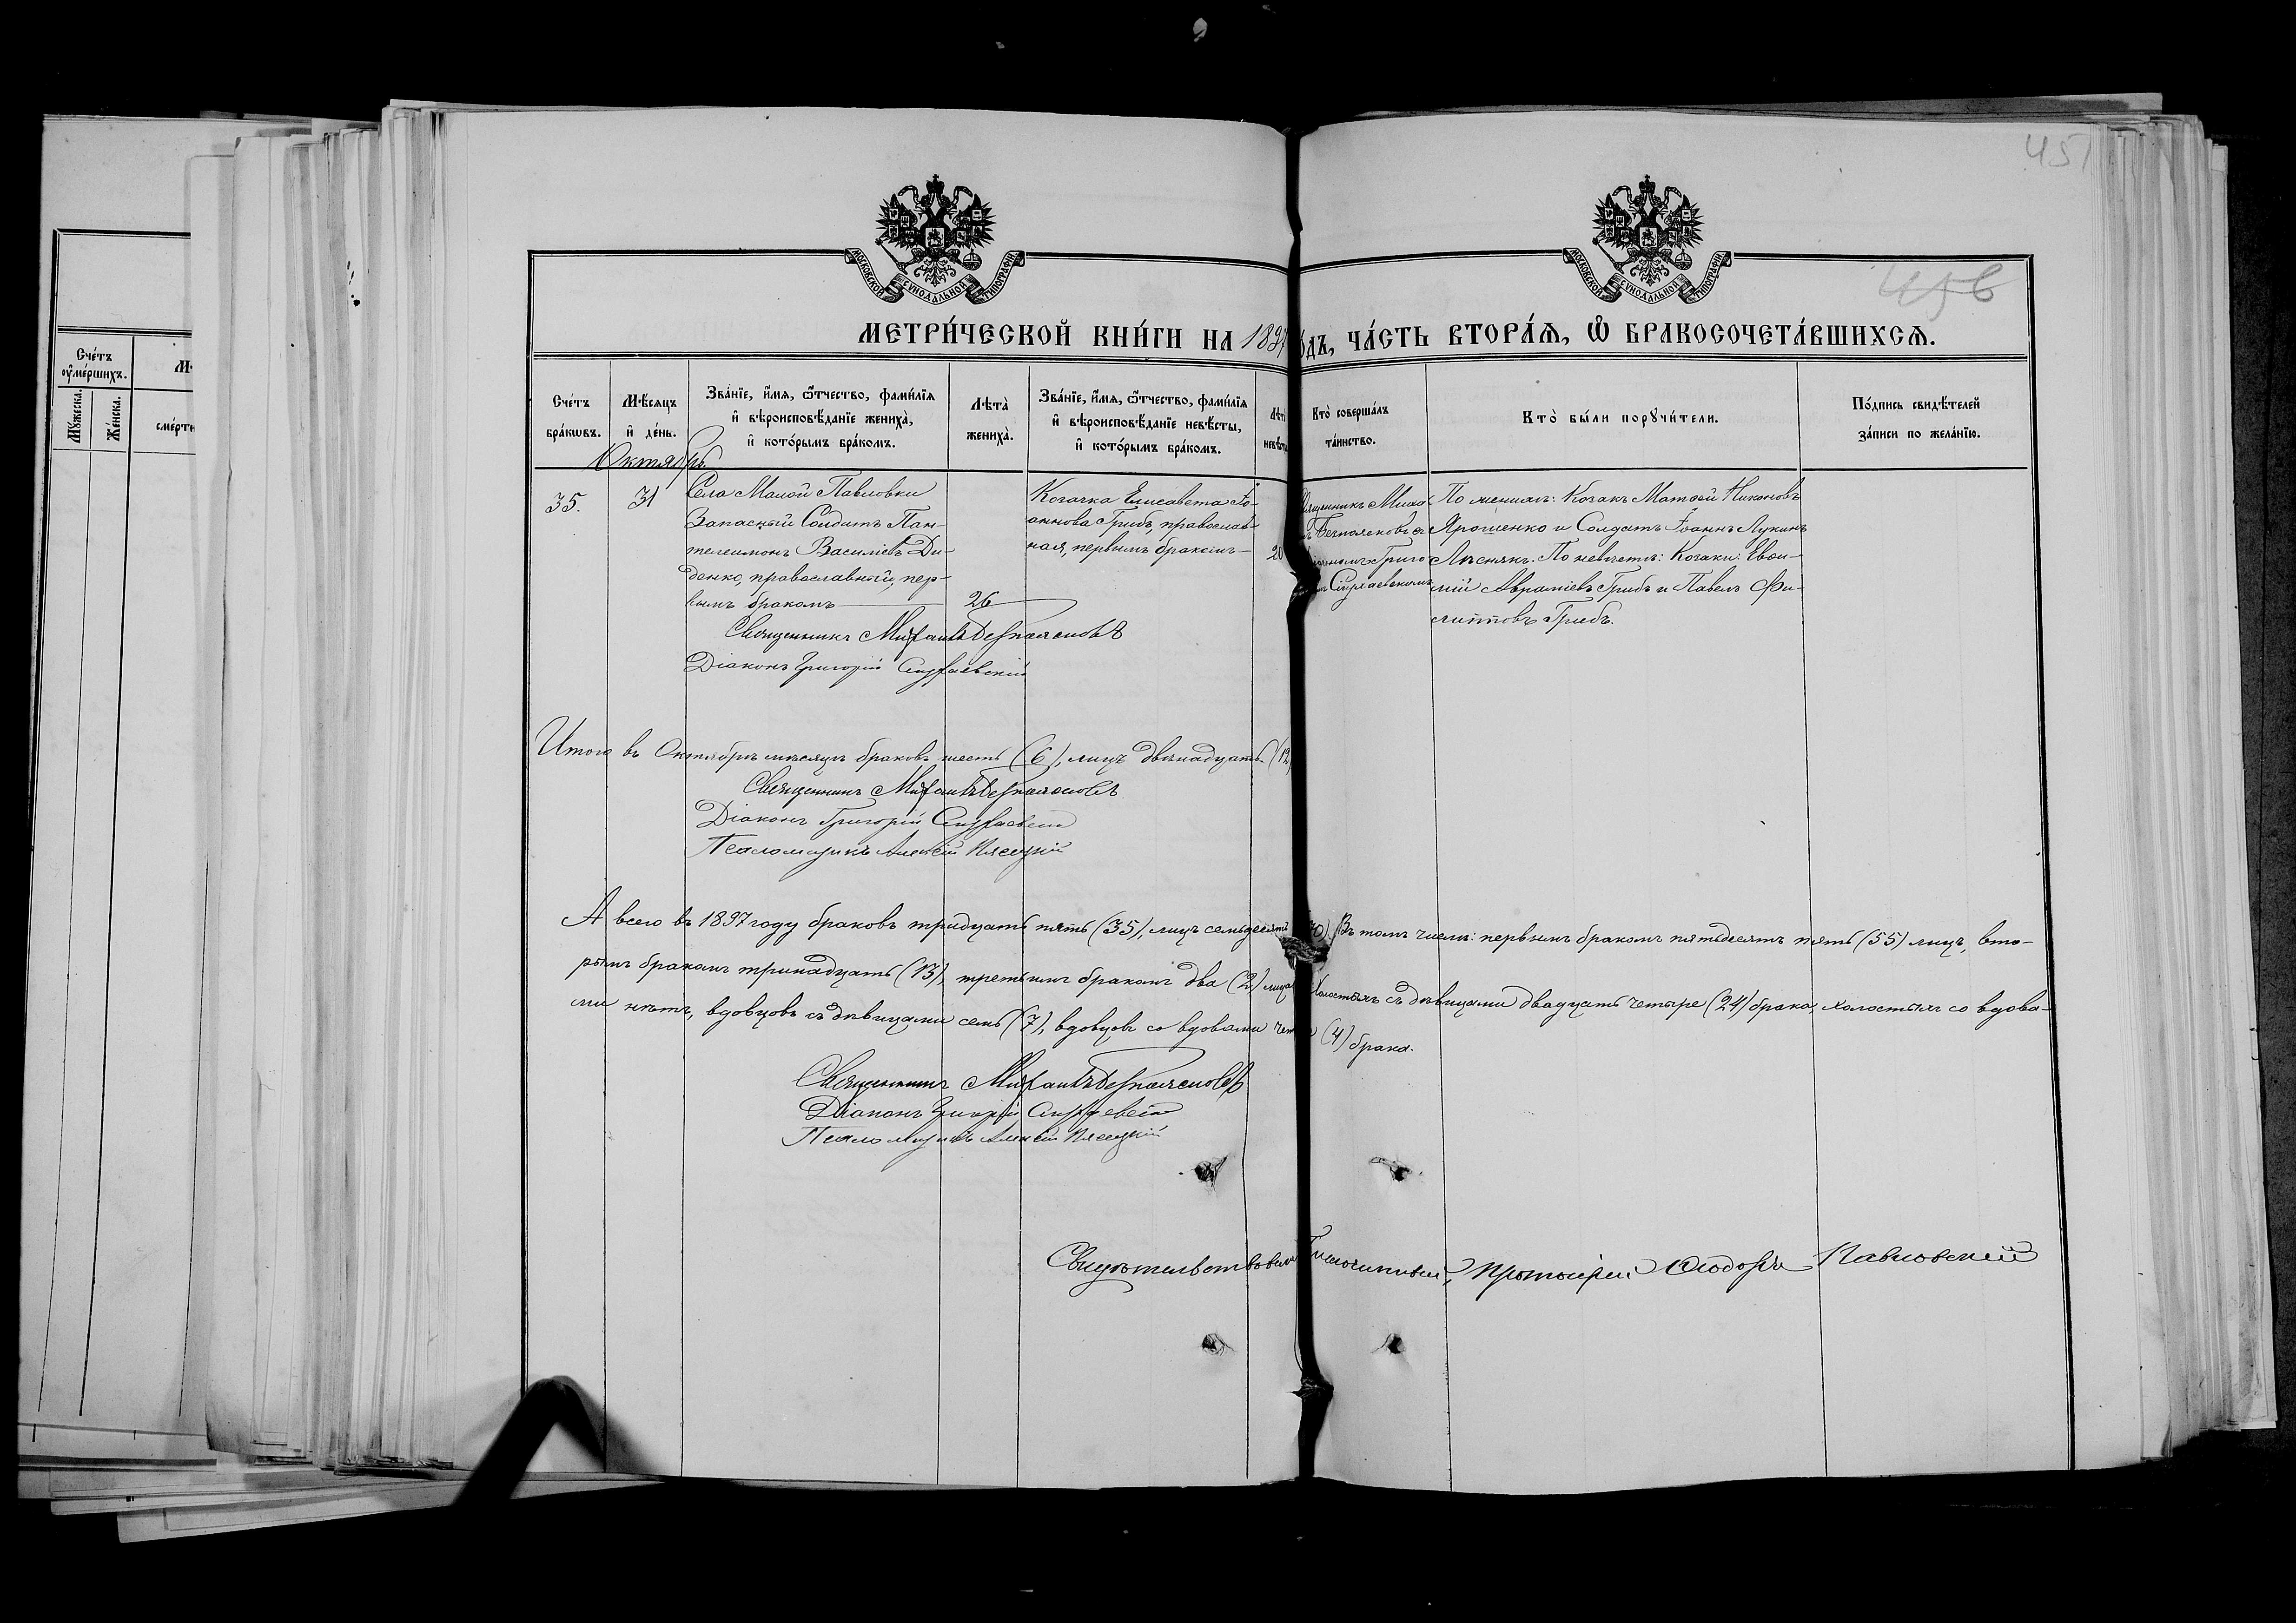 451
456
МОСКОВСКОЙ СѴНОДАЛЬНОЙ ТИПОГРАФІИ
МОСКОВСКОЙ СѴНОДАЛЬНОЙ ТИПОГРАФІИ
МЕТРИ́ЧЕСКОЙ КНИ́ГИ НА 1897 ГО́ДЪ, ЧА́СТЬ ВТОРА́Ѧ, Ѽ БРАКОСОЧЕТА́ВШИХСѦ.
Сче́тъ оу҆ме́ршихъ.
Мꙋ́жеска.
Же́нска.
сме́рти
Сче́тъ бра́кωвъ.
Мѣ́сяцъ и҆ де́нь.
Зва́нїе, и҆́мѧ, ѻ҆́тчество, фамѝлїѧ и҆ вѣроисповѣ́данїе жениха̀, и҆ кото́рымъ бра́комъ.
Лѣта̀ жениха̀.
Зва́нїе, и҆́мѧ, ѻ҆́тчество, фами́лїѧ и҆ вѣроисповѣ́данїе невѣ́сты, и҆ кото́рымъ бра́комъ.
Лѣта̀ невѣ́сты
Кто̀ соверша́лъ та́инство.
Кто̀ бы́ли порꙋчи́тели.
По́дпись свидѣ́телей за́писи по жела́нїю.
Октябрь
35.
31
Села Малой Павловки
Запасный Солдатъ Пан-
телеимонъ Василіевъ Ди-
денко, православный, пер-
вымъ бракомъ
26
Козачка Елисавета Іо-
аннова Грибъ, православ-
ная, первымъ бракомъ
20
Священникъ Миха
Григо
По женихѣ: Козакъ Матѳей Никоновъ
Ярошенко и Солдатъ Іоаннъ Лукинъ
Лѣснякъ. По невѣстѣ: Козаки: Евѳи-
мій Авраміевъ Грибъ и Павелъ Фи-
липповъ Грибъ.
Священникъ Михаилъ Безпалчовъ
Діаконъ Григорій
Итого въ Октябрѣ мѣсяцѣ браковъ шесть (6), лицъ двѣнадцать (12)
Священникъ Михаилъ
Діаконъ Григорій
Псаломщикъ Алексій Плесецкій
А всего въ 1897 году браковъ тридцать пять (35), лицъ семьдесятъ (70) Въ томъ числѣ: первымъ бракомъ пятьдесятъ пять (55) лицъ, вто-
рымъ бракомъ тринадцать (13), третьимъ бракомъ два (2) лица. Холостыхъ съ дѣвицами двадцать четыре (24) брака, холостыхъ со вдова-
ми нѣтъ, вдовцовъ съ дѣвицами семь (7), вдовцовъ со вдовами четыре (4) брака.
Священникъ Михаилъ
Діаконъ Григорій
Псаломщикъ Алексій Плесецкій
Свидѣтельствовалъ Благочинный, Протоіерей Ѳеодоръ Павловскій